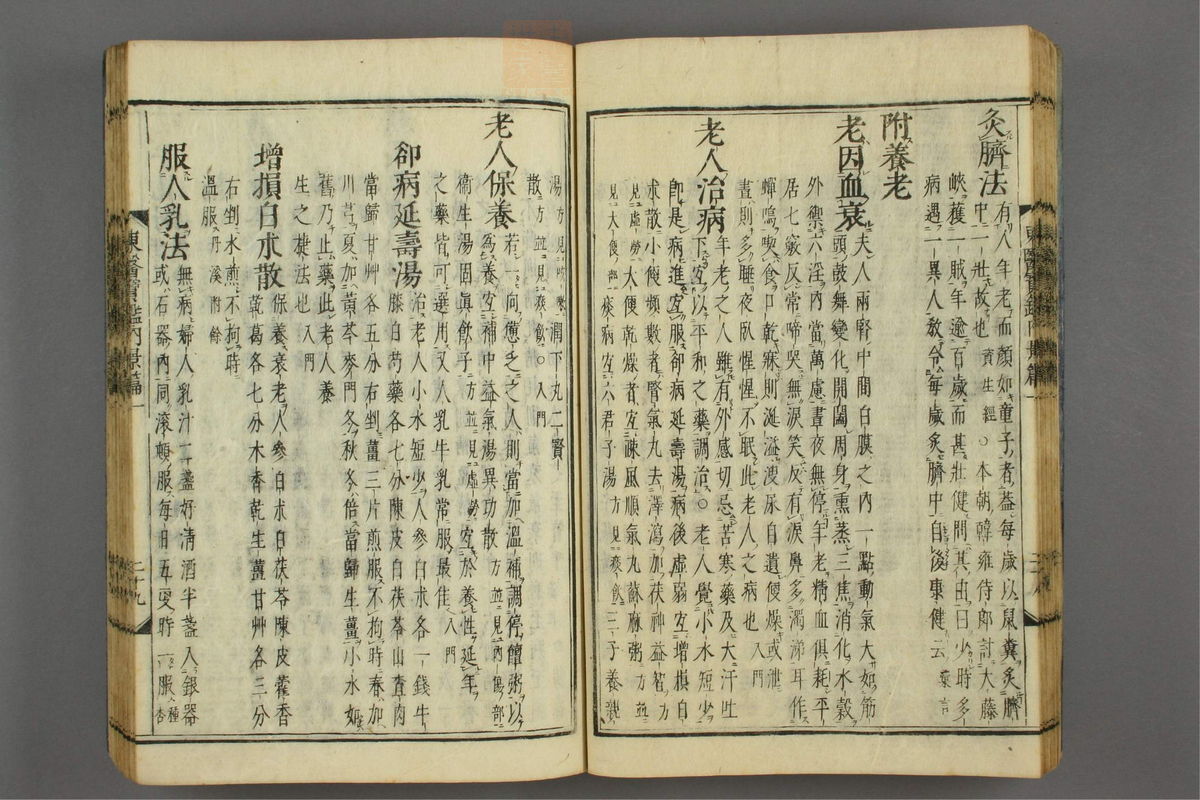 灸臍法有人年老而顔如童子者蓋每歲以鼠糞灸臍
中一壯故也資生經○本朝韓雍侍郎討大藤
峽獲一賊年逾百歲而甚壯健問其由曰少時多
病遇一異人教令每歲灸臍中自後康健云彙言
附養老
老因血衰夫人兩腎中間白膜之內一點動氣大如筯
頭鼓舞變化開闔周身熏蒸三焦消化水穀
外禦六淫內當萬慮晝夜無停年老精血俱耗平
居七竅反常啼哭無淚笑反有淚鼻多濁涕耳作
蟬鳴喫食口乾寐則涎溢溲尿自遺便燥或泄
晝則多睡夜臥惺惺不眠此老人之病也入門
老人治病年老之人雖有外感切忌苦寒藥及大汗吐
下宜以平和之藥調治○老人覺小水短少
卽是病進宜服卻病延壽湯病後虛弱宜增損白
朮散小便頻數者腎氣丸去澤瀉加茯神益智方
見虛勞大便乾燥者宜疎風順氣丸蘇麻粥方並
見大便有痰病宜六君子湯方見痰飮三子養親
東醫寶鑑內景篇一
湯方見咳嗽潤下丸二賢
散二方並見痰飮○入門
老人保養若一向憊乏之人則當加溫補調停饘粥以
爲養宜補中益氣湯異功散方並見內傷部
衞生湯固眞飮子方並見虛勞宜於養性延年
之藥皆可選用又人乳牛乳常服最佳入門
卻病延壽湯治老人小水短少人參白朮各一錢牛
膝白芍藥各七分陳皮白茯苓山査肉
當歸甘艸各五分右剉薑三片煎服不拘時春加
川芎夏加黃芩麥門冬秋冬倍當歸生薑小水如
舊乃止藥此老人養
生之捷法也入門
增損白朮散保養衰老人參白朮白茯苓陳皮藿香
乾葛各七分木香乾生薑甘艸各三分
右剉水煎不拘時
溫服丹溪附餘
服人乳法無病婦人乳汁二盞好清酒半盞入銀器
或石器內同滾頓服每日五更時一服一名種杏
東醫寶鑑內景篇一
二十九